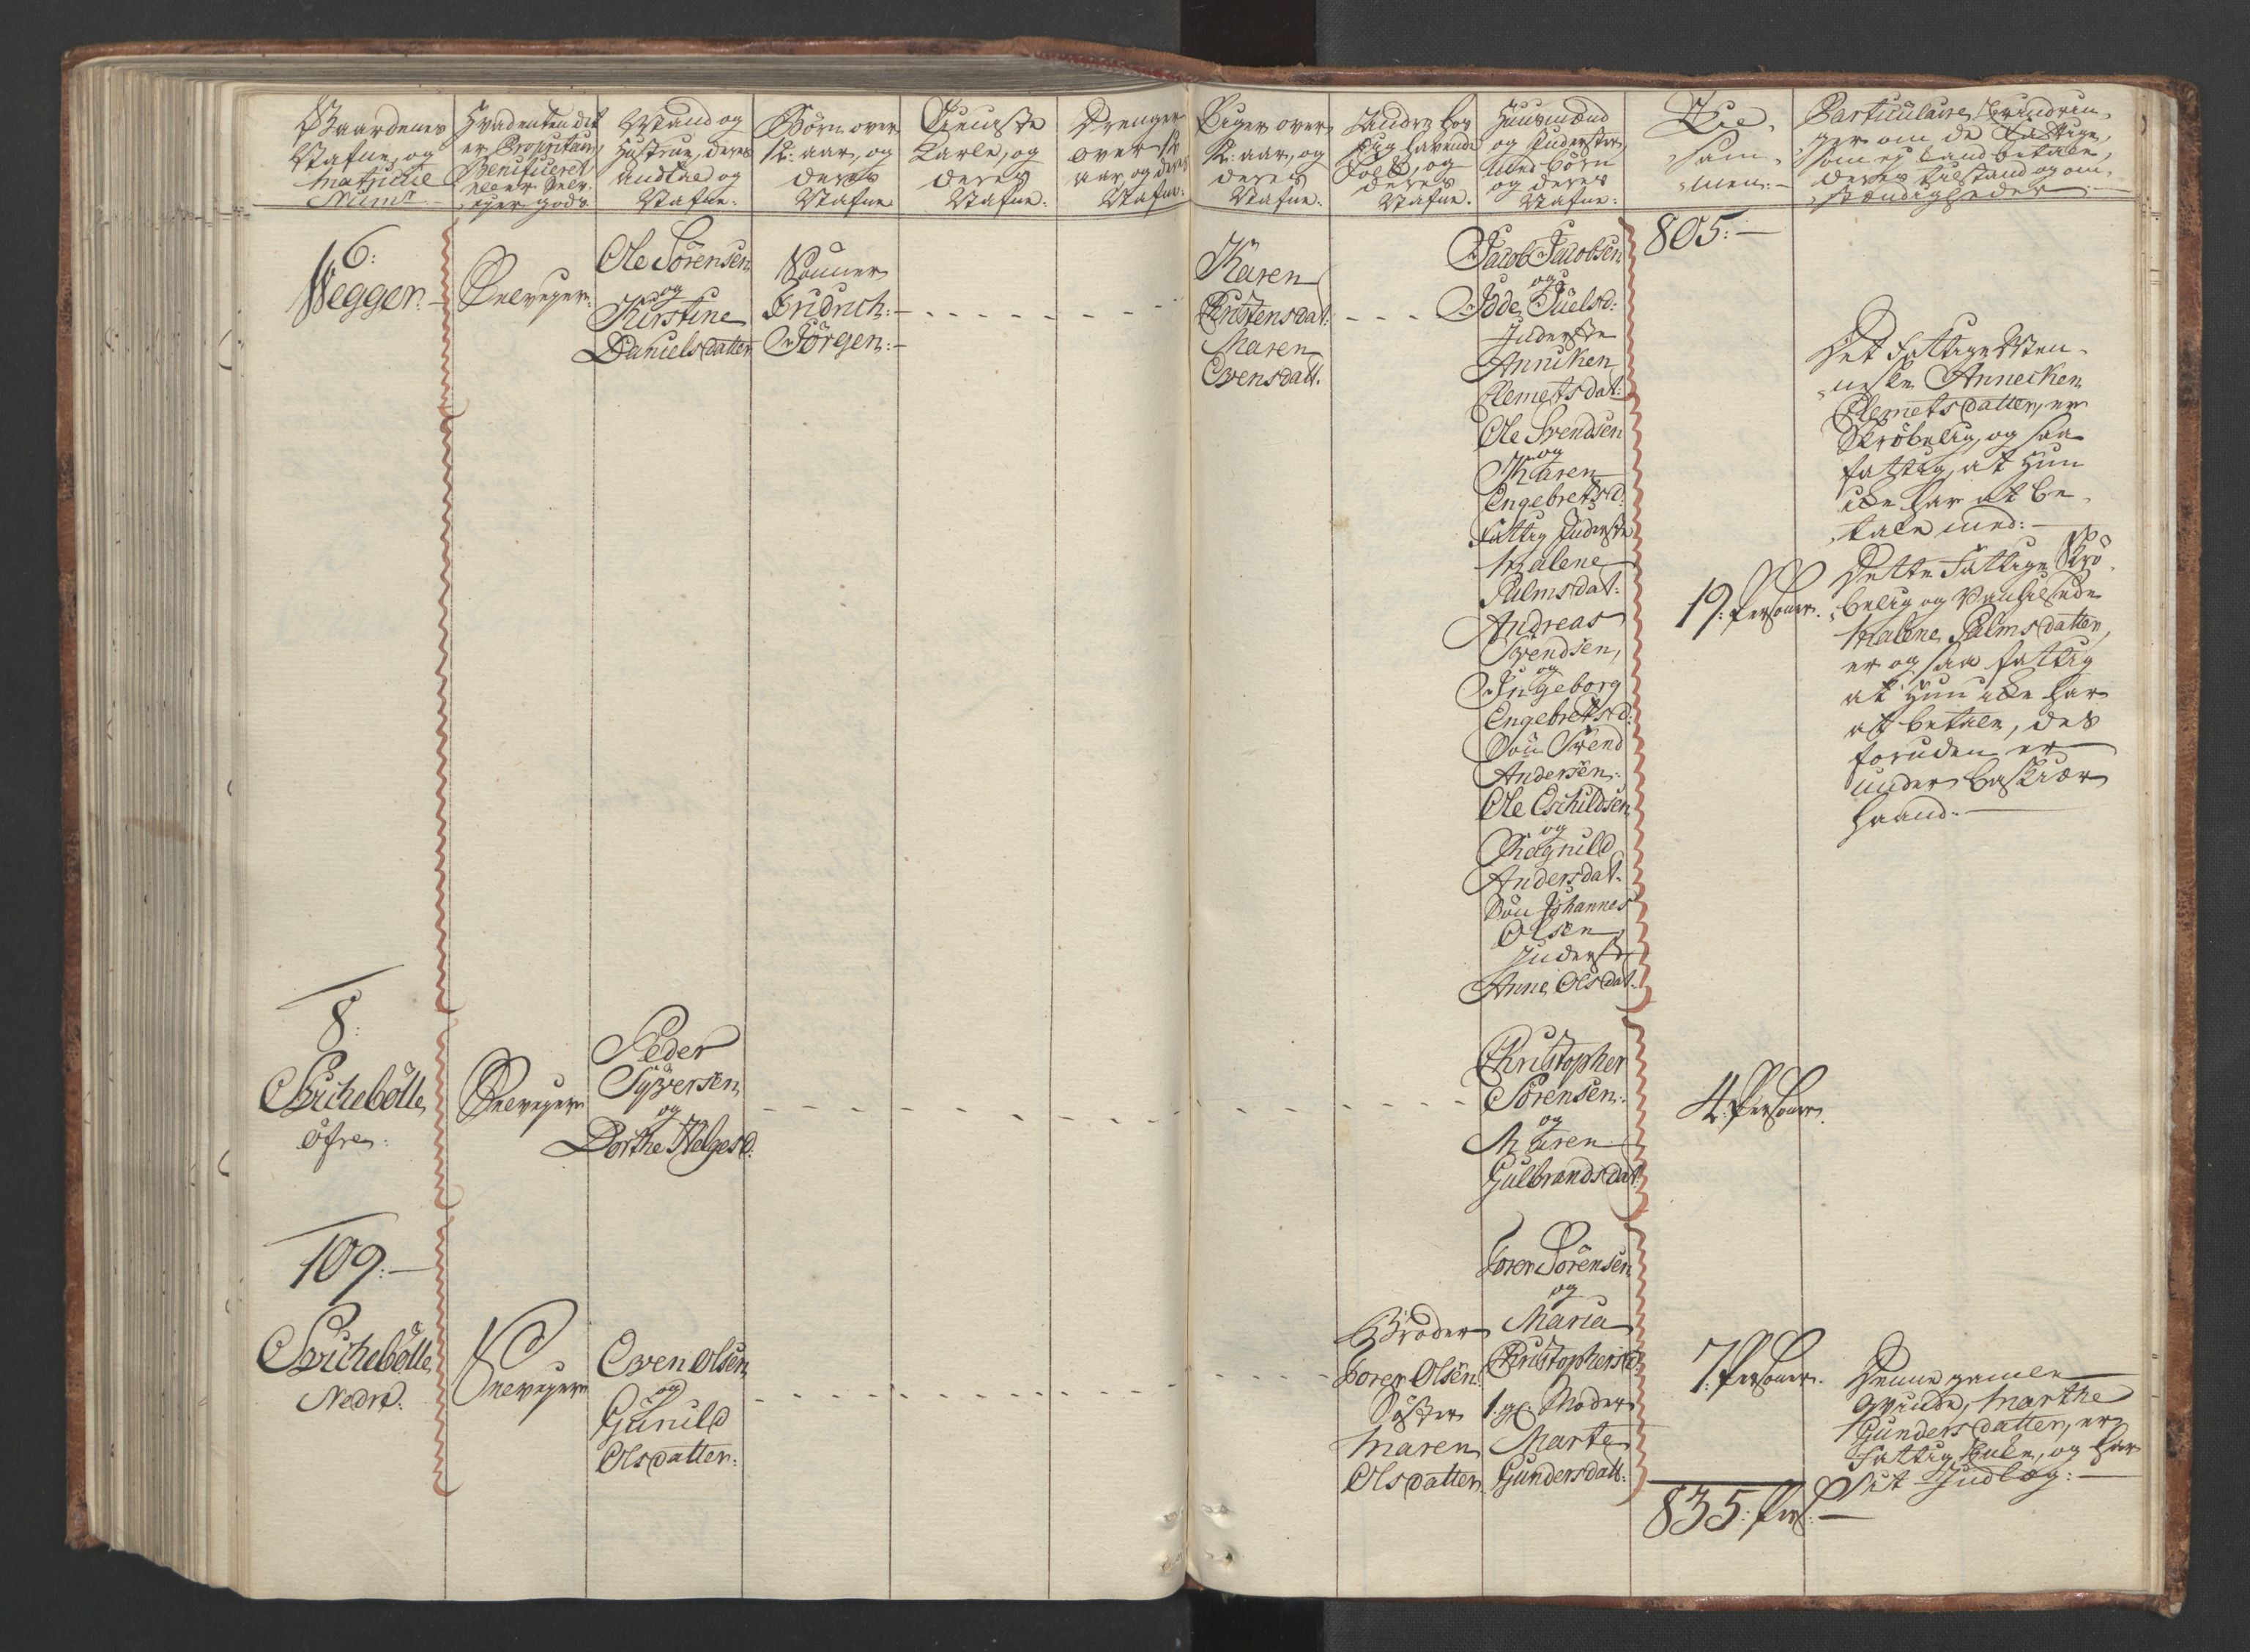 Gaardenes
Nafne, og
Matricul
Num:
Hvad enten det
er Propritair,
Benificeret
eller Selv-
eyer gods.
Mand og
Hustrue, deres
andtal og
Nafne:
Börn over
12: aar, og
deres
Nafne
Tieniste
Karle, og
deres
Nafne:
Drenger
over 12
aar og deres
Nafne:
Piger over
12: aar, og
deres
Nafne:
Andre hos
sig havende
Folk, og
deres
Nafne.
Huusmænd
og Inderster,
med börn
og deres
Nafne:
Til-
sam-
men:
Particulaire Erindrin-
ger om de Fattige,
som ej kand betale,
deres tilstand og om-
stændigheder:
16:
Wegger.
Selveyer.
Ole Sörensen
og
Kirstine
Daniels datter
Sönner
Fridrich:
Jörgen:
Karen
Christensdat:
Maren
Evensdatt.
Jacob Jacobsen
og
Idde Juelsd:
Inderste
Anniken
Clemetsdat:
Ole Svendsen
og
Karen
Engebretsd:
Fattig Inderste
Malene
Palmsdat:
Andreas
Svendsen,
og
Ingeborg
Engebretsd:
Sön Svend
Andersen:
Ole Eschildsen
og
Ragnild
Andersdat.
Sön Johannes
Olsen
Inderste
Anne Olsdat.
805:
19: Personer.
Det fattige Men-
neske Annecken
Clemets datter, er
Skröbelig, og saa
fattig, at hun
icke har at be-
tale med:
Dette Fattige Skrö-
belig og Vanhelsede
Malene Palms datter,
er og saa fattig
at hun icke har
at betale, des
foruden er
under Baskiær
haand.
8:
Svichebölle
öfre:
Selveyer
Peder
Syversen
og
Dorthe Helgesd:
Christopher
Sörensen:
og
Maren
Gulbrands dat
4: Personer.
109:
Svichebölle
Nedre.
Selveyer
Even Olsen
og
Gunild
Ols datter:
Broder
Soren Olsen
Söster
Maren
Ols datter
Soren Sörensen
og
Maria
Christophersd:
1: gl: Moder
Marte
Gundersdatt:
7: Personer.
Denne gamle
Qvinde, Marthe
Gunders datter, er
fattig, og har
sit Indlæg:
835: Pers: